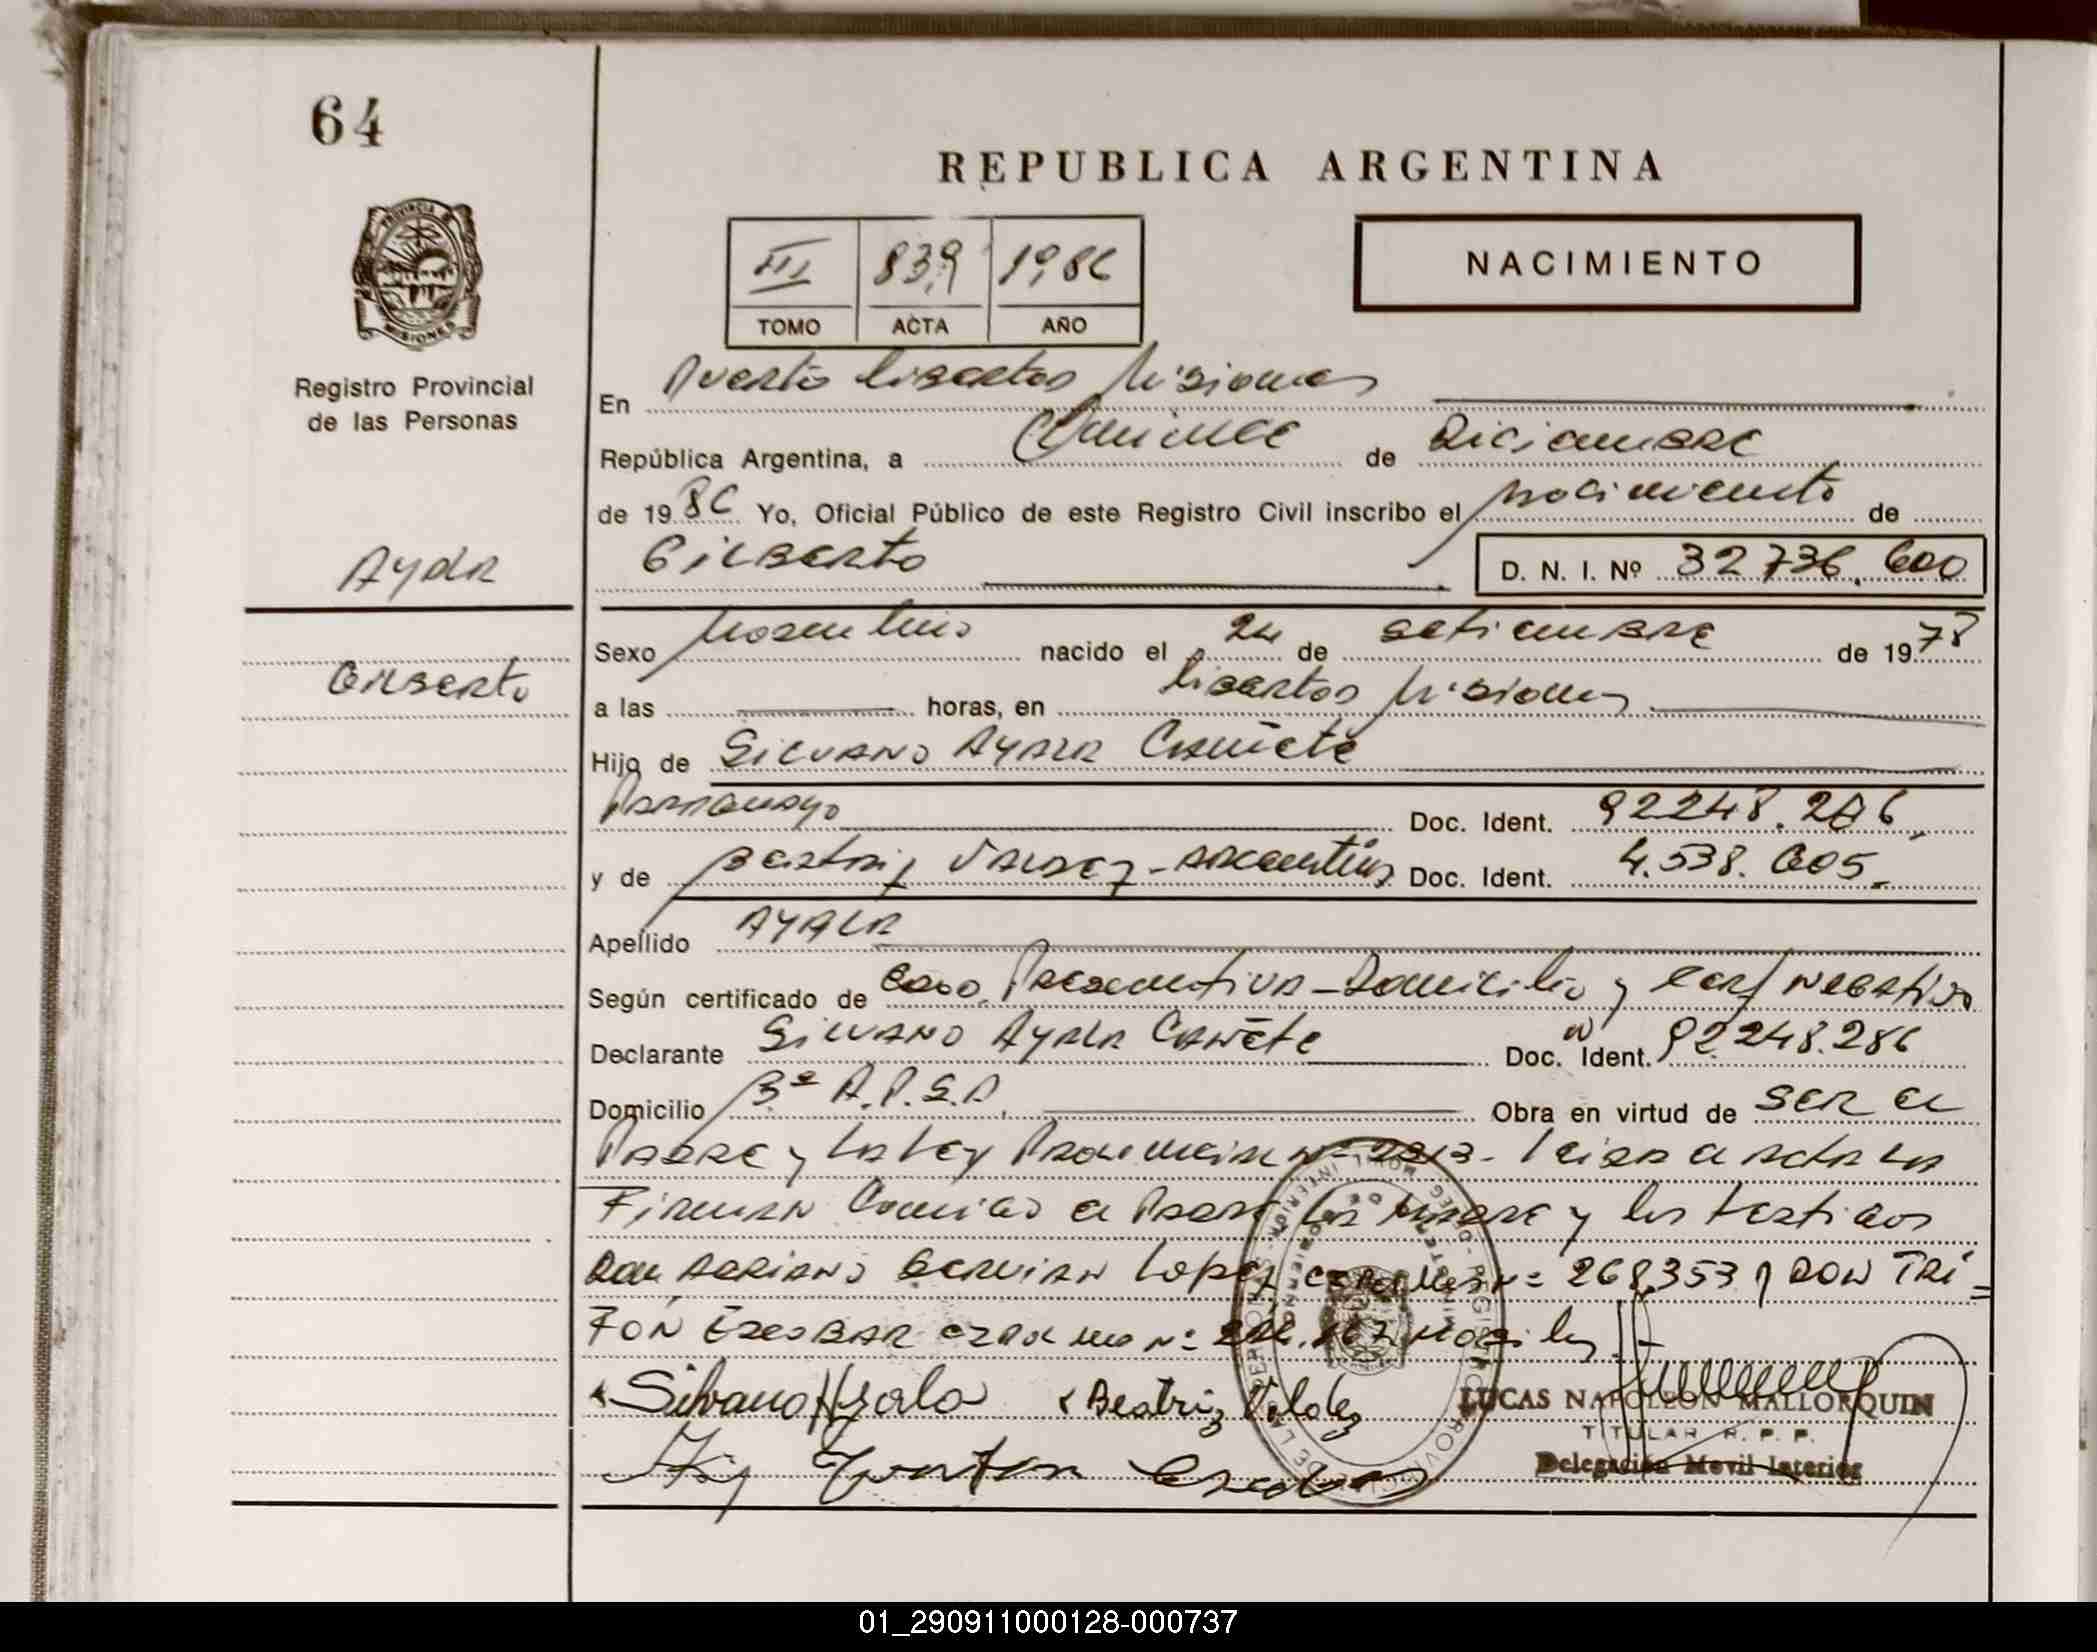 64
REPUBLICA ARGENTINA
PROVINCIA D
MISIONES
III 839 1986
TOMO ACTA AÑO
NACIMIENTO
Registro Provincial
de las Personas
En Puerto Libertad Misiones
República Argentina, a Quince de Diciembre
de 1986 Yo, Oficial Público de este Registro Civil inscribo el nacimiento de
Gilberto
D. N. I. Nº 32 736.600
Ayala
Gilberto
Sexo Masculino nacido el 24 de setiembre de 1978
a las horas, en Libertad Misiones
Hijo de Silvano Ayala Cañete
Paraguayo Doc. Ident. 92248.286
y de Beatriz Valdez - Argentina Doc. Ident. 4.538.605.
Apellido AYALA
Según certificado de Edad Presuntiva - Domicilio y cert negativo
Declarante Silvano Ayala Cañete Doc. Ident. 92.248.286
Domicilio Bº A.P.S.A. Obra en virtud de ser el
Padre y la Ley Provincial Nº 2213 - Leida el acta la
Firman Conmigo el Padre la Madre y los testigos
Don Adriano Lopez Nº 268,353 y DON TRI=
FON ESCOBAR Nº
Silvano Ayala Beatriz Valdez
LUCAS NAPOLEON MALLORQUIN
TITULAR R. P. P.
Delegación Movil Interior
Escobar
01_290911000128-000737